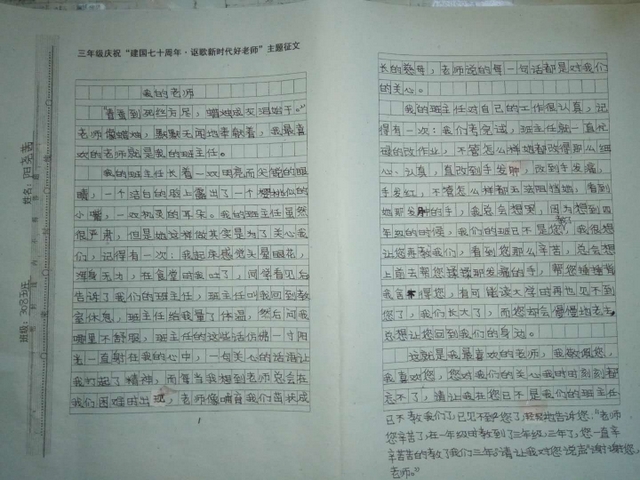 三年级庆祝“建国七十周年·讴歌新时代好老师”主题征文
我的老师
“春蚕到死丝方尽，蜡炬成灰泪始干。”
老师像蜡烛，默默无闻地奉献着，我最喜
欢的老师就是我的班主任。
我的班主任长着一双明亮而尖锐的眼
睛，一个洁白的脸上露出了一个樱桃似的
小嘴，一双机灵的耳朵。我的班主任虽然
很严肃，但是她这样做其实是为了关心我
们，记得有一次：我起床感觉头晕眼花，
浑身无力，在食堂时我吐了，同学看见后
告诉了我们的班主任，班主任叫我回到教
室休息，班主任给我量了体温，然后问我
哪里不舒服，班主任的这些话仿佛一寸阳
光一直射在我的心中，一句关心的话语让
我打起了精神，而每当我想到老师总会在
我们困难时出现，老师像哺育我们茁壮成
1
长的慈母，老师说的每一句话都是对我们
的关心。
我的班主任对自己的工作很认真，记
得有一次：我们考完试，班主任就一直忙
碌的改作业，不管怎么样她都改得那么细
心、认真，直改到手发肿，改到手发痛，
手发红，不管怎么样都无法阻挡她，看到
她那发肿的手，我总会想哭，因为想到四
年级的时候，我们的班已不是您教，我很想
让您再教我们，看到您那么辛苦，总会想
上前去帮您揉揉那发痛的手，帮您捶捶背
您了，我们长大了，而您却会慢慢地老去
您想让您回到我们的身边。
这就是我最喜欢的老师，我敬佩您，
我喜欢您，您对我们的关心我时时刻刻都
忘不了，请让我在您已不是我们的班主任
已不教我们了，已见不到您了，轻轻地告诉您：“老师
您辛苦了，在一年级时教到了三年级，三年了，您一直辛
辛苦苦的教了我们三年，请让我对您说声‘谢谢您，
老师。’”
姓名：
班级：